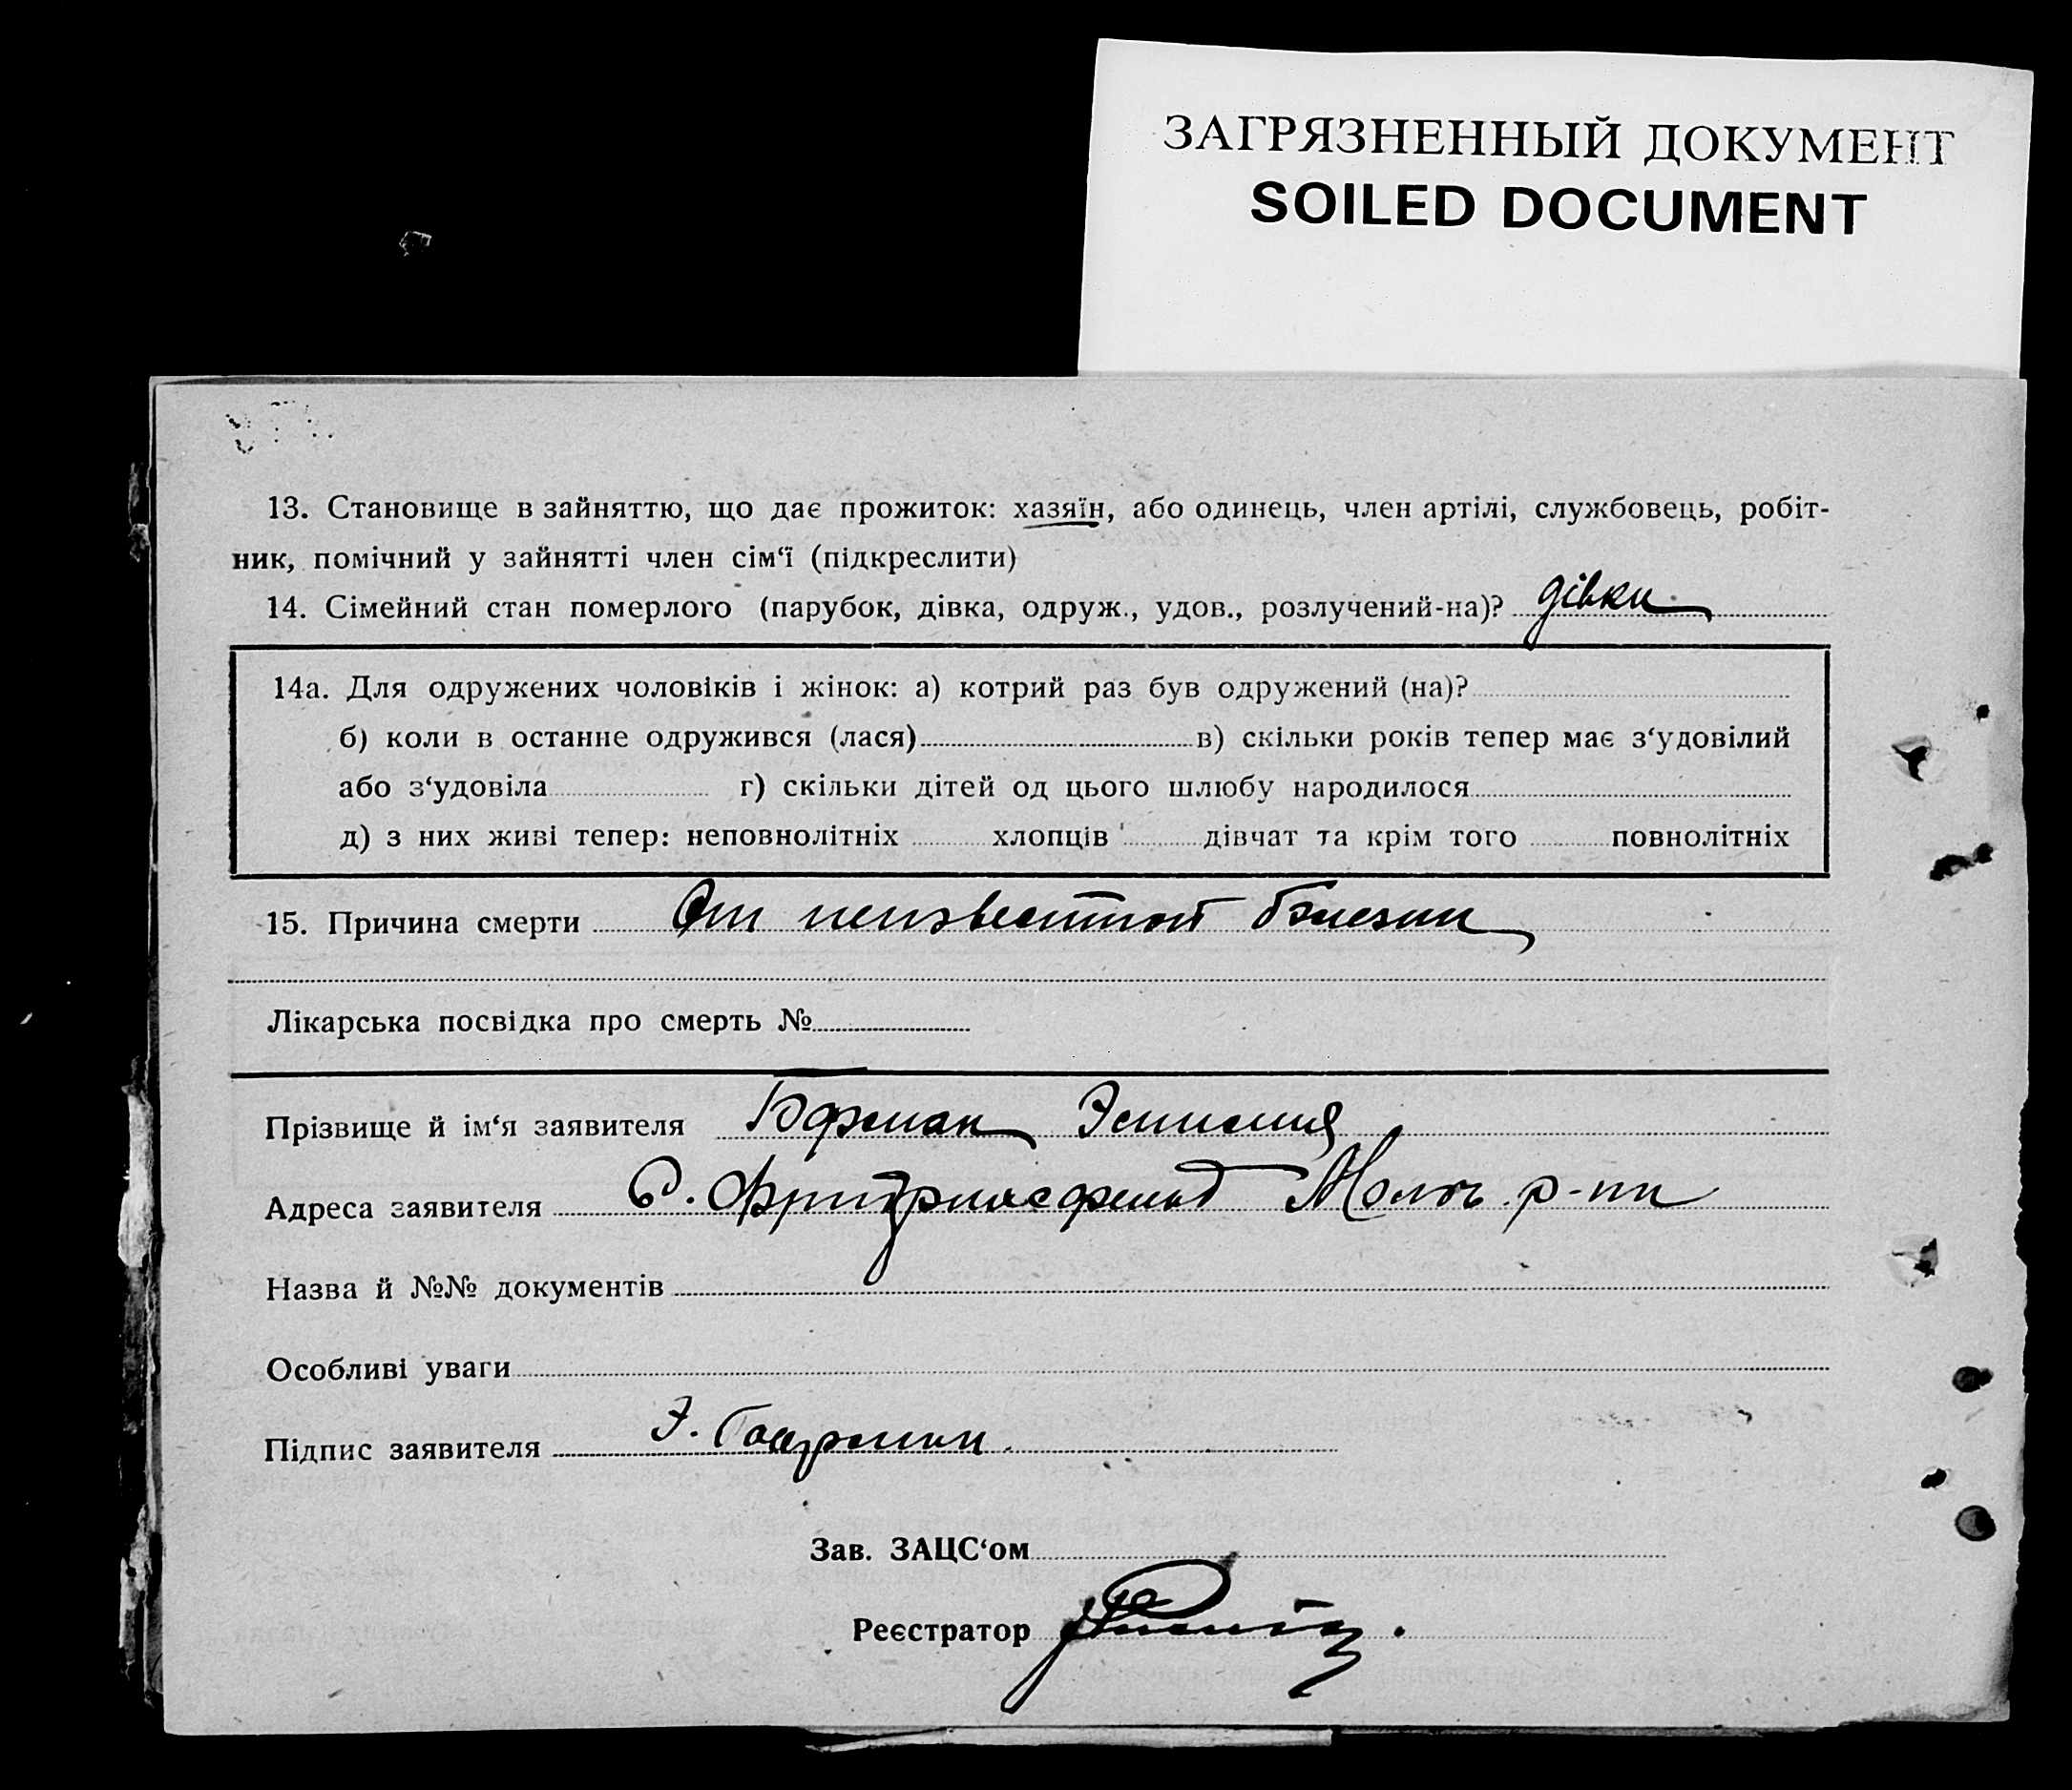 ЗАГРЯЗНЕННЫЙ ДОКУМЕНТ
SOILED DOCUMENT
13. Становище в зайняттю, що дає прожиток: хазяїн, або одинець, член артілі, службовець, робіт-
ник, помічний у зайнятті член сім‘ї (підкреслити)
14. Сімейний стан померлого (парубок, дівка, одруж., удов., розлучений-на)? дівка
14а. Для одружених чоловіків і жінок: а) котрий раз був одружений (на)?
б) коли в останнє одружився (лася) в) скільки років тепер має з‘удовілий
або з‘удовіла г) скільки дітей од цього шлюбу народилося
д) з них живі тепер: неповнолітніх хлопців дівчат та крім того повнолітніх
15. Причина смерти От неизвестной болезни
Лікарська посвідка про смерть №
Прізвище й ім‘я заявителя
Адреса заявителя с. Молоч. р-на
Назва й №№ документів
Особливі уваги
Підпис заявителя Э.
Зав. ЗАЦС‘ом
Реєстратор